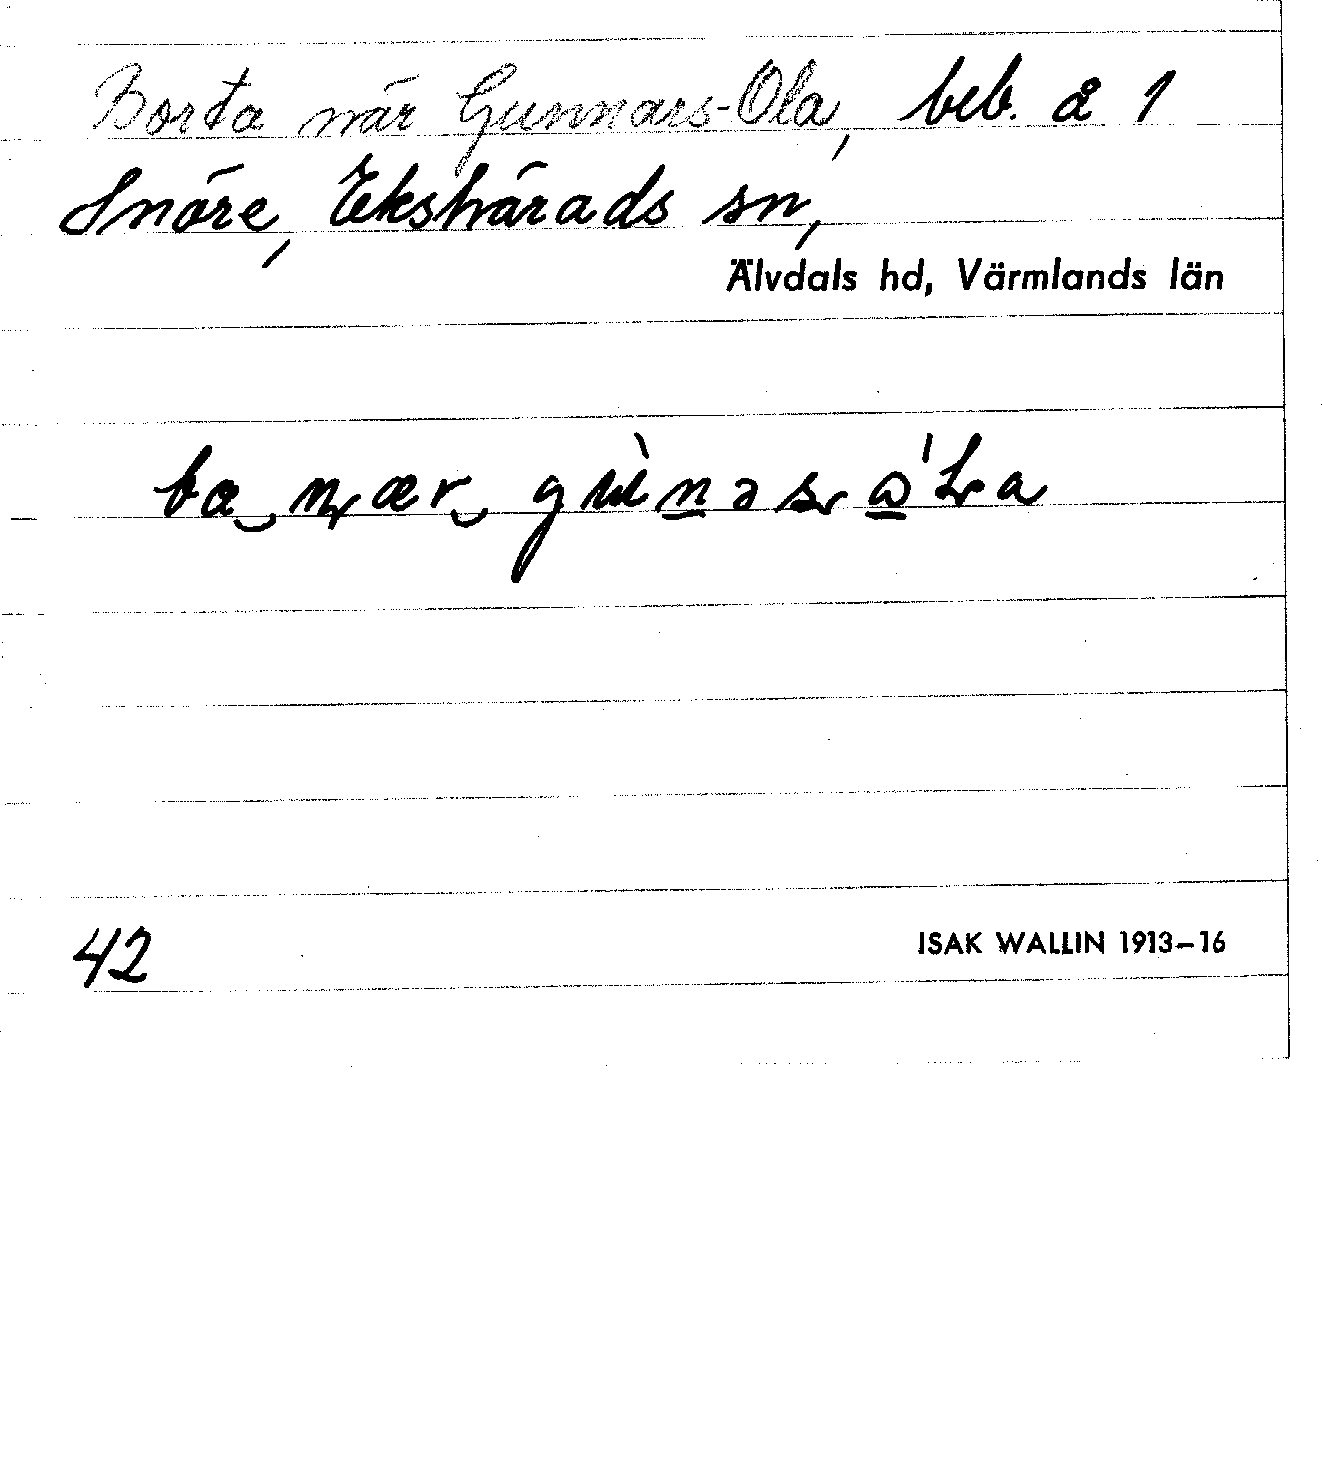 Borta när Gunnars-Ola, beb. å 1
Snöre, Ekshärads sn,
Älvdals hd, Värmlands län
42
ISAK WALLIN 1913–16